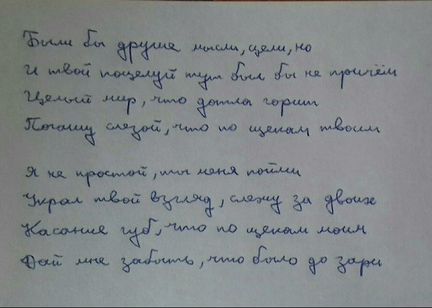 Были бы другие мысли, цели, но
И твой поцелуй тут был бы не причём
Целый мир, что дотла горит
Погашу слезой, что по щекам твоим
Я не простой, ты меня пойми
Украл твой взгляд, слежу за двоих
Касание губ, что по щекам моим
Дай мне забыть, что было до зари